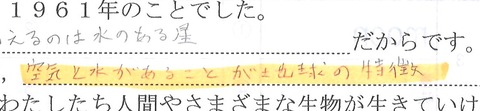 １９６１年のことでした。
えるのは水のある星だからです。
，空気と水があることが地球の特徴
わたしたち人間やさまざまな生物が生きていけ